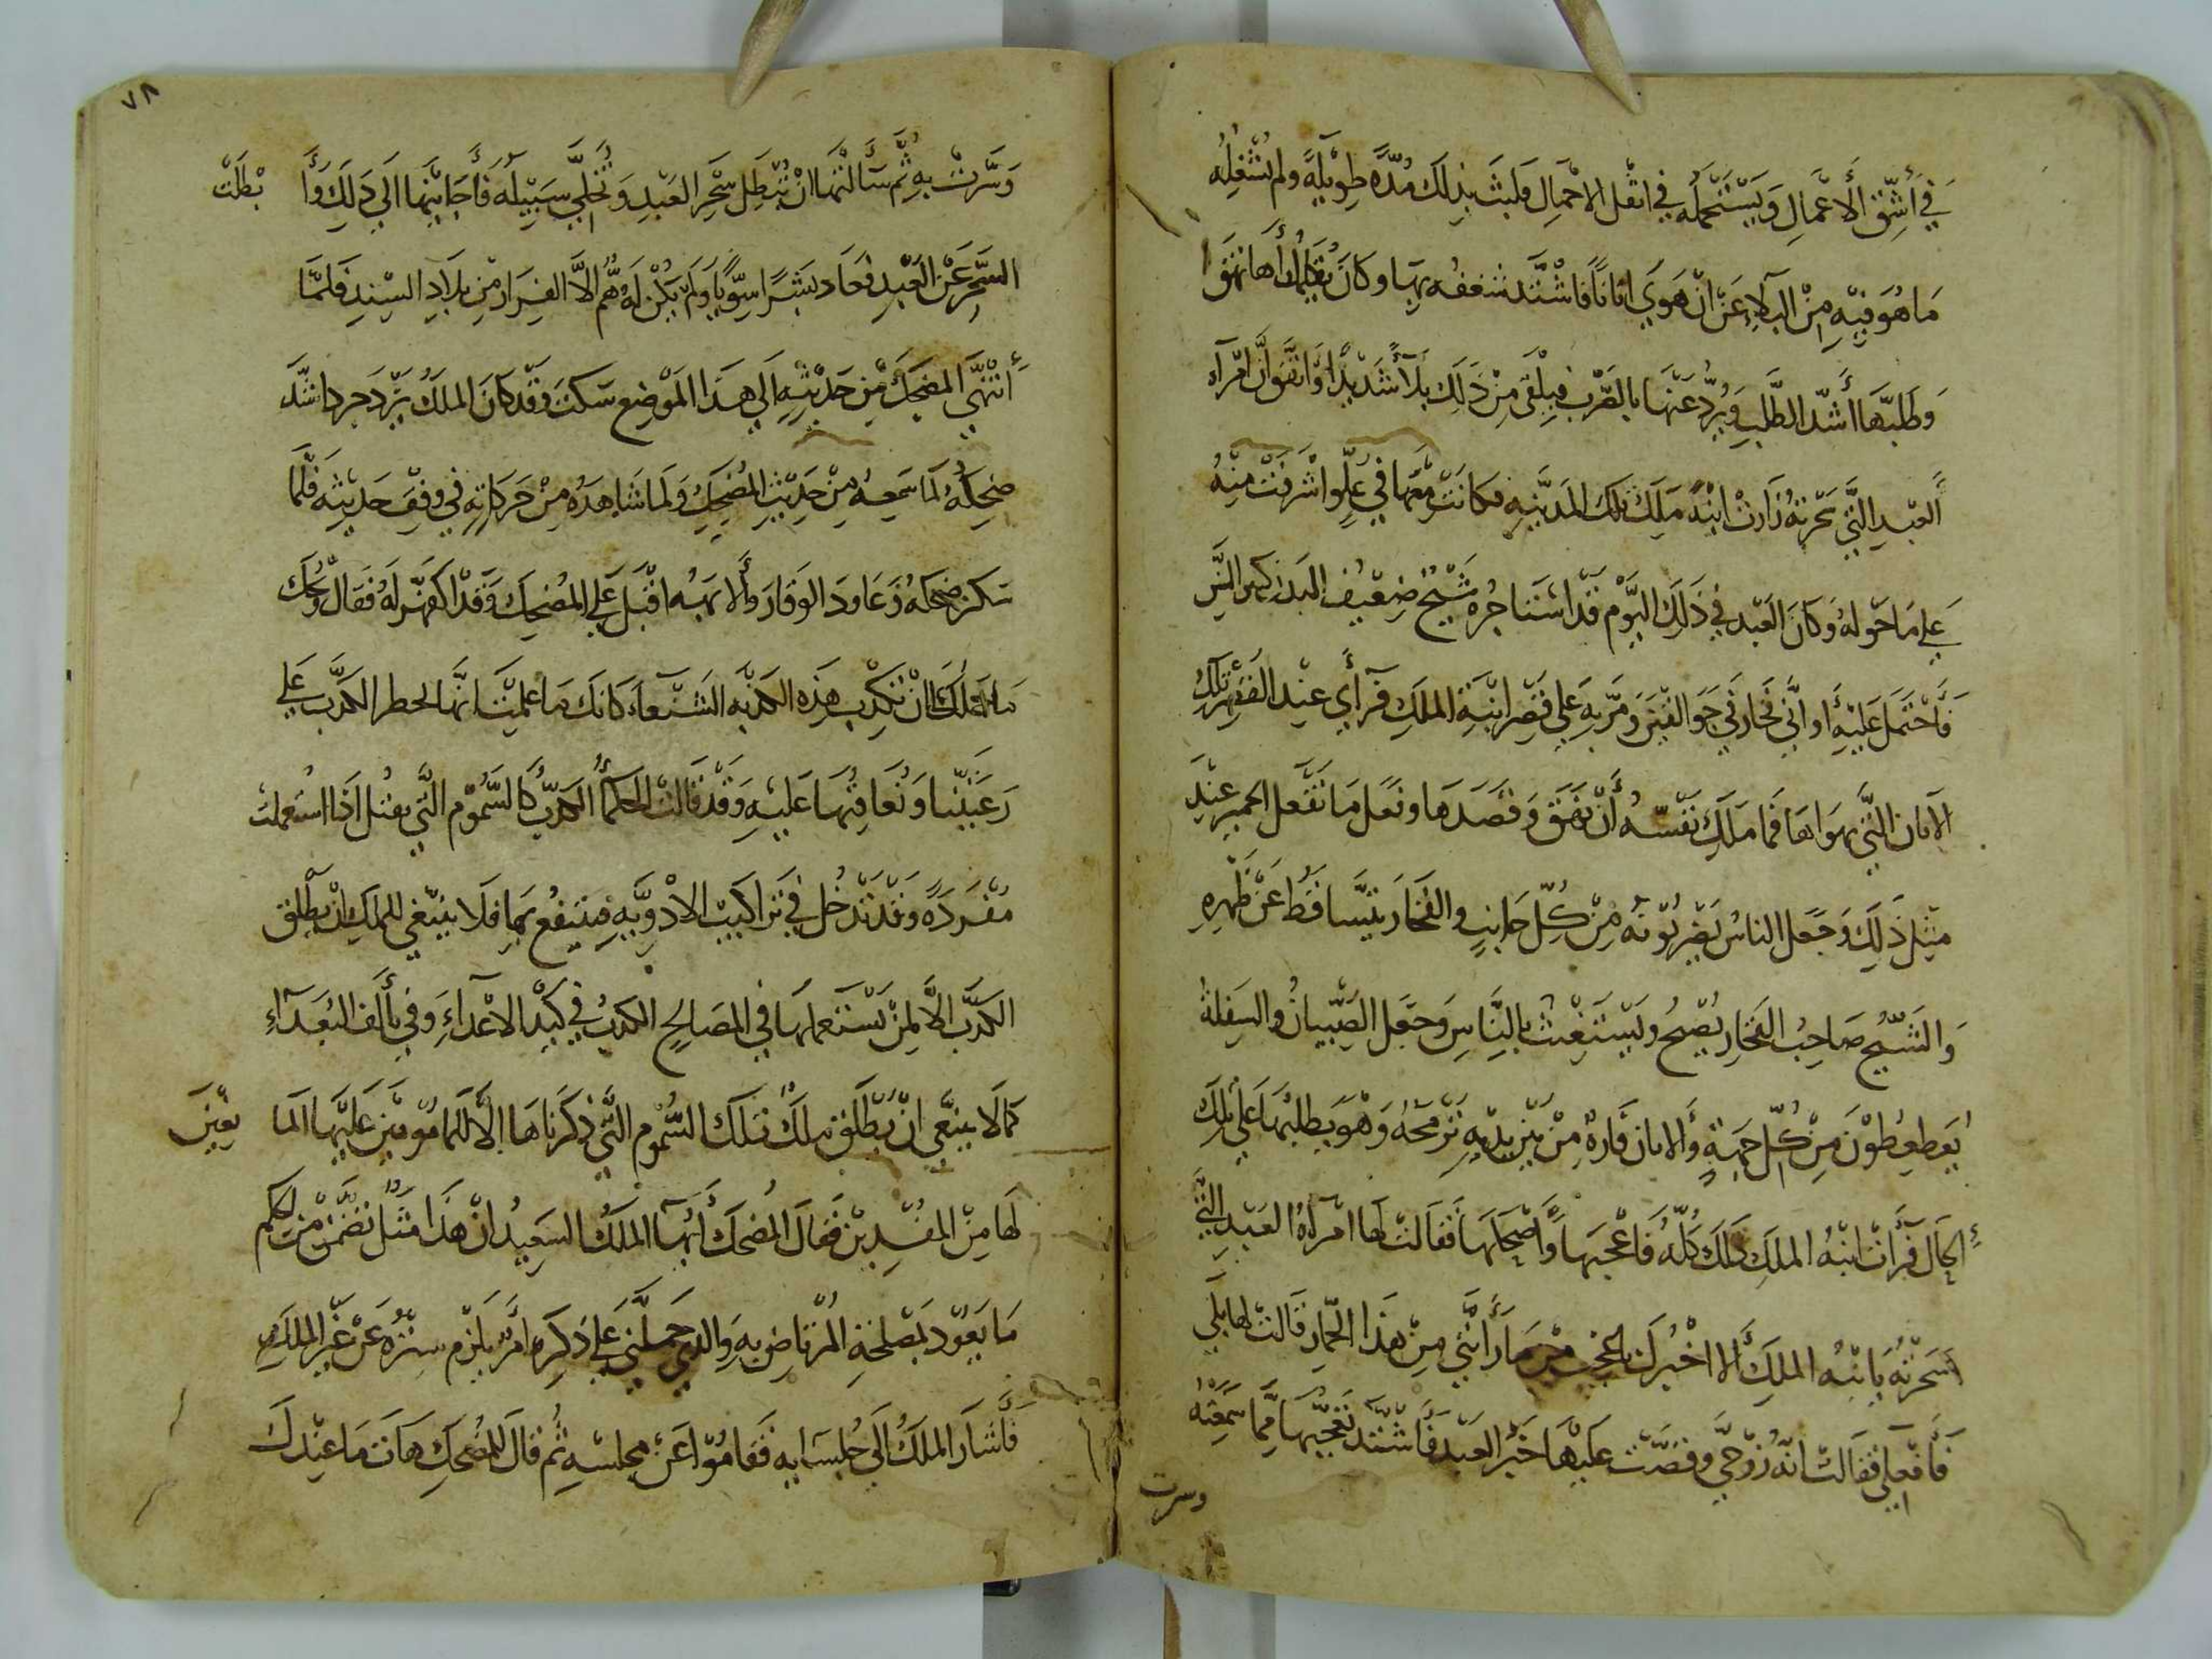 في أشق الأعمال ويستحمله في اثقل الاحمال فلبث بذلك مدة طويلة ولم يشغله
ما هو فيه من البلاء عن ان هوي اتانا فاشتد شغفه بها وكان كلما رأها نهق
وطلبها أشد الطلب ويرد عنها بالضرب فيلقى من ذلك بلاً شديدا واتفق ان امرأة
العبد التي سحرته زارت ابنة ملك تلك المدينة فكانت معها في علو اشرفت منه
علي ما حوله وكان العبد في ذلك اليوم قد استاجره شيخ ضعيف البدن كبير السن
فاحتمل عليه أواني فخار في جوالقين ومر به علي قصر ابنة الملك فرأي عند القصر تلك
الاتان التي يهواها فما ملك نفسه أن نهق وقصدها وفعل ما تفعل الحمير عند
مثل ذلك وجعل الناس يضربونه من كل جانب والفخار يتساقط عن ظهره
والشيخ صاحب الفخار يصيح ويستغيث بالناس وجعل الصبيان والسفلة
يعطعطون من كل جهة والاتان فارة من بين يديه ترمحه وهو يطلبها على تلك
الحال فرأت ابنة الملك ذلك كله فاعجبها وأضحكها فقالت لها امرأة العبد التي
سحرته يا ابنة الملك ألا اخبرك باعجب من ما رأيتي من هذا الحمار قالت لها بلي
فأفعلي فقالت انه زوجي وقصت عليها خبر العبد فأشتد تعجبها مما سمعته
وسرت
٧٨
وسرت به ثم سألتها ان تبطل سحر العبد وتخلي سبيله فأجابتها الي ذلك وأبطلت
السحر عن العبد فعاد بشرا سويا ولم يكن له هم الا الفرار من بلاد السند فلما
أنتهي المضحك من حديثه الي هذا الموضع سكت وقد كان الملك يزدجرد اشتد
ضحكه لما سمعه من حديث المضحك ولما شاهده من حركاته في وفق حديثه فلما
سكن ضحكه وعاود الوقار والابهة اقبل علي المضحك وقد اكفهر له فقال ويحك
ما حملك علي ان تكذب هذه الكذبة الشنعاء كانك ما علمت انا نحظر الكذب علي
رعيتنا ونعاقبها عليه وقد قالت الحكمأ الكذب كالسموم التي تقتل اذا استعملت
مفردة وقد تدخل في تراكيب الادوية فينتفع بها فلا ينبغي للملك ان يطلق
الكذب الا لمن يستعملها في المصالح الكذب في كيد الاعداء وفي تألف البعداء
كما لا ينبغي ان يطلق ملك تلك السموم التي ذكرناها إلا للمأمونين عليها المانعين
لها من المفسدين فقال المضحك أيها الملك السعيد ان هذا مثل تضمن من الحكم
ما يعود بمصلحة المرتاض به والذي حملني علي ذكره امر يلزم ستره عن غير الملك
فأشار الملك الي جلسايه فقاموا عن مجلسه ثم قال للمضحك هات ما عندك